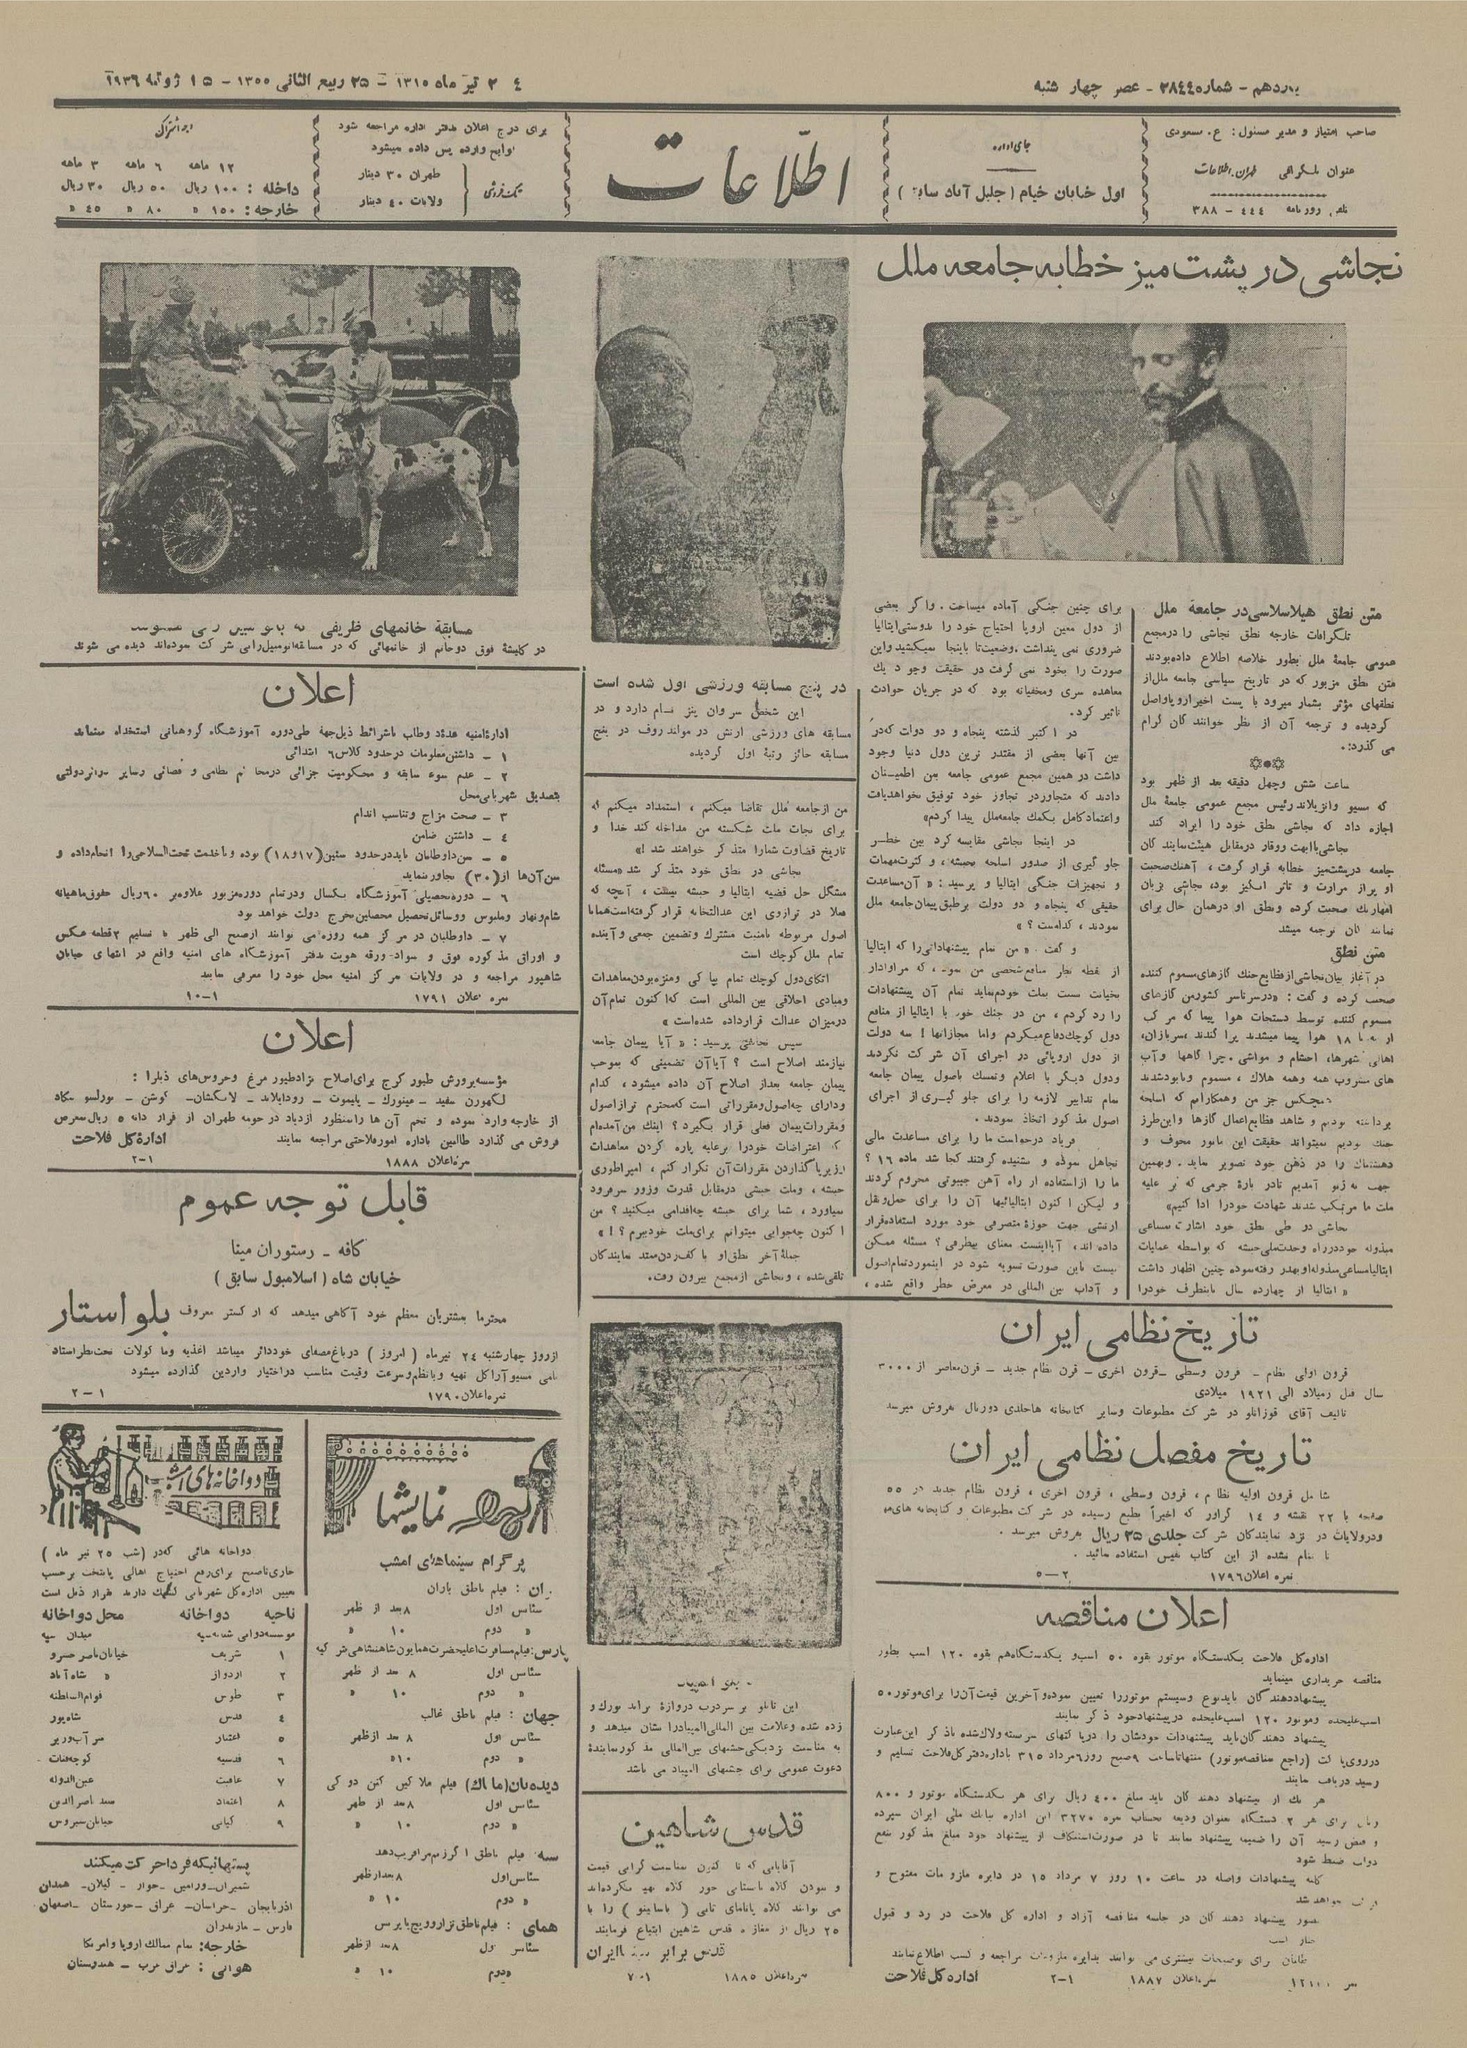 یازدهم - شماره ۳۸۴۴ - عصر چهار شنبه
۲۴ تیر ماه ۱۳۱۵ - ۲۵ ربیع الثانی ۱۳۵۵ - ۱۵ ژوئیه ۱۹۳۶
صاحب امتیاز و مدیر مسئول : ع. مسعودی
عنوان تلگرافی طهران. اطلاعات
تلفن روزنامه ۴۴۴ - ۳۸۸
جای اداره
اول خیابان خیام ( جلیل آباد سابق )
اطلاعات
برای درج اعلان بدفتر اداره مراجعه شود
لوایح وارده پس داده نمیشود
تک فروشی
طهران ۳۰ دینار
ولایات ۴۰ دینار
وجه اشتراک
۱۲ ماهه ۶ ماهه ۳ ماهه
داخله : ۱۰۰ ریال ۵۰ ریال ۳۰ ریال
خارجه : ۱۵۰ » ۸۰ » ۴۵ »
نجاشی در پشت میز خطابه جامعه ملل
متن نطق هیلاسلاسی در جامعه ملل
تلگرافات خارجه نطق نجاشی را در مجمع
عمومی جامعه ملل بطور خلاصه اطلاع داده بودند
متن نطق مزبور که در تاریخ سیاسی جامعه ملل از
نطقهای مؤثر بشمار میرود با پست اخیر اروپا واصل
گردیده و ترجمه آن از نظر خوانندگان گرام
می گذرد :
ساعت شش وچهل دقیقه بعد از ظهر بود
که مسیو وانزیلاند رئیس مجمع عمومی جامعه ملل
اجازه داد که نجاشی نطق خود را ایراد کند
نجاشی با ابهت ووقار در مقابل هیئت نمایندگان
جامعه در پشت میز خطابه قرار گرفت ، آهنگ صحبت
او پر از مرارت و تاثر انگیز بود، نجاشی بزبان
امهاریک صحبت کرده ونطق او در همان حال برای
نمایندگان ترجمه میشد
متن نطق
در آغاز بیان نجاشی از فظایع جنک گازهای مسموم کننده
صحبت کرده و گفت : « در سرتاسر کشور من گازهای
مسموم کننده توسط دستجات هوا پیما که مرکب
از ۹ تا ۱۸ هوا پیما میشدند پراکندند ، سربازان،
اهالی شهرها، احشام و مواشی، چراگاهها وآب
های مشروب همه وهمه هلاک ، مسموم ونابود شدند
هیچکس جز من وهمکارانم که اسلحه
برداشته بودیم و شاهد فظایع اعمال گازها واین طرز
جنک بودیم نمیتواند حقیقت این مخوف و
دهشتناک را در ذهن خود تصویر نماید. وبهمین
جهت به ژنو آمدیم تا در بارهٔ جرمی که بر علیه
ملت ما مرتکب شدند شهادت خود را ادا کنیم»
نجاشی در طی نطق خود اشارت بمساعی
مبذوله خود در راه وحدت ملی حبشه که بواسطه عملیات
ایتالیا مساعی مبذوله او بهدر رفته نموده چنین اظهار داشت
« ایتالیا از چهارده سال باینطرف خود را
برای چنین جنگی آماده میساخت. واگر بعضی
از دول معین اروپا احتیاج خود را بدوستی ایتالیا
ضروری نمی پنداشت ، وضعیت تا باینجا نمیکشید و این
صورت را بخود نمی گرفت در حقیقت وجود یک
معاهده سری ومخفیانه بود که در جریان حوادث
تاثیر کرد.
در اکتبر گذشته پنجاه و دو دولت که در
بین آنها بعضی از مقتدر ترین دول دنیا وجود
داشت در همین مجمع عمومی جامعه بمن اطمینان
دادند که متجاوز در تجاوز خود توفیق نخواهد یافت
واعتماد کامل بکمک جامعه ملل پیدا کردم»
در اینجا نجاشی مقایسه کرد بین خطر
جلو گیری از صدور اسلحه بحبشه ، و کثرت مهمات
و تجهیزات جنگی ایتالیا و پرسید : « آن مساعدت
حقیقی که پنجاه و دو دولت بر طبق پیمان جامعه ملل
نمودند ، کدامست ؟ »
و گفت . « من تمام پیشنهاداتی را که ایتالیا
از نقطه نظر منافع شخصی من نمود ، که مرا وادار
بخیانت نسبت بملت خودم نماید تمام آن پیشنهادات
را رد کردم ، من در جنک خود با ایتالیا از منافع
دول کوچک دفاع میکردم واما مجازاتها ! سه دولت
از دول اروپائی در اجرای آن شرکت نکردند
ودول دیگر با اعلام وتمسک باصول پیمان جامعه
تمام تدابیر لازمه را برای جلو گیری از اجرای
اصول مذکور اتخاذ نمودند .
فریاد درخواست ما را برای مساعدت مالی
تجاهل نموده و نشنیده گرفتند کجا شد ماده ۱۶ ؟
ما را از استفاده از راه آهن جیبوتی محروم کردند
و لیکن اکنون ایتالیائیها آن را برای حمل و نقل
ارتشی جهت حوزهٔ متصرفی خود مورد استفاده قرار
داده اند ، آیا اینست معنای بیطرفی ؟ مسئله ممکن
نیست باین صورت تسویه شود در اینمورد تمام اصول
و آداب بین المللی در معرض خطر واقع شده ،
در پنج مسابقه ورزشی اول شده است
این شخص سروان نام دارد و در
مسابقه های ورزشی ارتش در در پنج
مسابقه حائز رتبهٔ اول گردیده
من از جامعه ملل تقاضا میکنم ، استمداد میکنم که
برای نجات ملت شکسته من مداخله کند خدا و
تاریخ قضاوت شما را متذکر خواهند شد ! »
نجاشی در نطق خود متذکر شد « مسئله
مشگل حل قضیه ایتالیا و حبشه نیست ، آنچه که
فعلا در ترازوی این عدالتخانه قرار گرفته است همانا
اصول مربوطه بامنیت مشترک وتضمین جمعی و آینده
تمام ملل کوچک است
اتکای دول کوچک تمام بپاکی ومنزه بودن معاهدات
ومبادی اخلاقی بین المللی است که اکنون تمام آن
در میزان عدالت قرار داده شده است »
سپس نجاشی پرسید : « آیا پیمان جامعه
نیازمند اصلاح است ؟ آیا آن تضمینی که بموجب
پیمان جامعه بعد از اصلاح آن داده میشود ، کدام
ودارای چه اصول و مقرراتی است که محترم تر از اصول
ومقررات پیمان فعلی قرار بگیرد ؟ اینک من آمده ام
که اعتراضات خود را بر علیه پاره کردن معاهدات
وزیر پا گذاردن مقررات آن تکرار کنم ، امپراطوری
حبشه ، وملت حبشی در مقابل قدرت وزور سر فرود
نمیاورد ، شما برای حبشه چه اقدامی میکنید ؟ من
اکنون چه جوابی میتوانم برای ملت خود ببرم ؟ ! »
جملهٔ آخر نطق او با کف زدن ممتد نمایندگان
تلقی شده ، ونجاشی از مجمع بیرون رفت.
این تابلو بر سردر دروازهٔ براند بورک و
زده شده وعلامت بین المللی المپیاد را نشان میدهد و
به مناسبت نزدیکی جشنهای بین المللی مذکور نمایندهٔ
دعوت عمومی برای جشنهای المپیاد می باشد
قدس شاهین
آقایانی که تا کنون بمناسبت گرانی قیمت
و نبودن کلاه تابستانی خوب کلاه تهیه نکرده اند
می توانند کلاه پانامای را با
۲۵ ریال از مغازه قدس شاهین ابتیاع فرمایند
نمره اعلان ۱۸۸۵
۷-۱
مسابقهٔ خانمهای ظریفی که
در کلیشهٔ فوق دو خانم از خانمهائی که در مسابقه اتومبیل رانی شرکت نموده اند دیده می شوند
اعلان
اداره امنیه عده داوطلب با شرائط ذیل جهة طی دوره آموزشگاه گروهبانی استخدام مینماید
۱ - داشتن معلومات در حدود کلاس ۶ ابتدائی
۲ - عدم سوء سابقه و محکومیت جزائی در محاکم نظامی و قضائی وسایر دوائر دولتی
بتصدیق شهربانی محل
۳ - صحت مزاج وتناسب اندام
۴ - داشتن ضامن
۵ - سن داوطلبان باید در حدود سنین (۱۷ و ۱۸) بوده و یا خدمت تحت السلاحی را انجام داده و
سن آن ها از (۳۰) تجاوز ننماید
۶ - دوره تحصیلی آموزشگاه یکسال و در تمام دوره مزبور علاوه بر ۶۰ ریال حقوق ماهیانه
شام ونهار وملبوس ووسائل تحصیل محصلین بخرج دولت خواهد بود
۷ - داوطلبان در مرکز همه روزه می توانند از صبح الی ظهر با تسلیم ۲ قطعه عکس
و اوراق مذکوره فوق و سواد ورقه هویت بدفتر آموزشگاه های امنیه واقع در انتهای خیابان
شاهپور مراجعه و در ولایات مرکز امنیه محل خود را معرفی نمایند
نمره اعلان ۱۷۹۱ ۱۰-۱
اعلان
مؤسسه پرورش طیور کرج برای اصلاح نژاد طیور مرغ وخروس های ذیل را :
لکهورن سفید - مینورک - پلیموت - رودایلاند - لانکشان -
از خارجه وارد نموده و تخم آن ها را بمنظور ازدیاد در حومه طهران از قرار دانه ۵ ریال بمعرض
فروش می گذارد طالبین باداره امور فلاحتی مراجعه نمایند
اداره کل فلاحت
نمره اعلان ۱۸۸۸ ۲-۱
قابل توجه عموم
کافه - رستوران مینا
خیابان شاه ( اسلامبول سابق )
محترما بمشتریان معظم خود آگاهی میدهد که ارکستر معروف بلو استار
از روز چهارشنبه ۲۴ تیرماه ( امروز ) در باغ مصفای خود دائر میباشد اغذیه وماکولات تحت نظر استاد
نامی مسیو آراکل تهیه و با نظم وسرعت وقیمت مناسب در اختیار واردین گذارده میشود
نمره اعلان ۱۷۹۰ ۲-۱
نمایشها
پرگرام سینماهای امشب
ایران : فیلم ناطق باران
سئانس اول ۸ بعد از ظهر
» دوم ۱۰ »
پارس : فیلم مسافرت اعلیحضرت همایون شاهنشاهی بترکیه
سئانس اول ۸ بعد از ظهر
» دوم ۱۰ »
جهان : فیلم ناطق غالب
سئانس اول ۸ بعد از ظهر
» دوم ۱۰ »
دیده بان (ماباک) فیلم
سئانس اول ۸ بعد از ظهر
» دوم ۱۰ »
سپه فیلم ناطق اگر نیم مرا فریب دهد
سئانس اول ۸ بعد از ظهر
» دوم ۱۰ »
همای : فیلم ناطق
سئانس اول ۸ بعد از ظهر
» دوم ۱۰ »
دواخانه های امشب
دواخانه هائی که در (شب ۲۵ تیر ماه )
جاری تا صبح برای رفع احتیاج اهالی پایتخت بر حسب
تعیین اداره کل شهربانی کشیک دارند بقرار ذیل است
ناحیه دواخانه محل دواخانه
میدان سپه
۱ شریف خیابان ناصر خسرو
۲ » شاه آباد
۳ طوس قوام السلطنه
۴ قدس شاهپور
۵ افتخار سر آب وزیر
۶ قدسیه
۷ عافیت عین الدوله
۸ اعتماد
۹ کیانی خیابان سیروس
پستهائیکه فردا حرکت میکنند
شمیران - ورامین - خوار - گیلان - همدان
آذربایجان - خراسان - عراق - خوزستان - اصفهان
فارس - مازندران
خارجه : تمام ممالک اروپا و امریکا
هوائی : عراق عرب - هندوستان
تاریخ نظامی ایران
قرون اولی نظام - قرون وسطی - قرون اخری - قرن نظام جدید - قرن معاصر از ۳۰۰۰
سال قبل از میلاد الی ۱۹۲۱ میلادی
تالیف آقای قوزانلو در شرکت مطبوعات وسایر کتابخانه ها جلدی دو ریال بفروش میرسد
تاریخ مفصل نظامی ایران
شامل قرون اولیه نظام ، قرون وسطی ، قرون اخری ، قرون نظام جدید در ۵۵۰
صفحه با ۲۲ نقشه و ۱۴ گراور که اخیراً بطبع رسیده در شرکت مطبوعات و کتابخانه های مهم
و در ولایات در نزد نمایندگان شرکت جلدی ۲۵ ریال بفروش میرسد .
تا تمام نشده از این کتاب نفیس استفاده نمائید .
نمره اعلان ۱۷۹۶ ۵-۲
اعلان مناقصه
اداره کل فلاحت یکدستگاه موتور بقوه ۵۰ اسب و یکدستگاه هم بقوه ۱۲۰ اسب بطور
مناقصه خریداری مینماید
پیشنهاد دهندگان باید نوع وسیستم موتور را تعیین نموده و آخرین قیمت آن را برای موتور ۵۰
اسب علیحده وموتور ۱۲۰ اسب علیحده در پیشنهاد خود ذکر نمایند
پیشنهاد دهندگان باید پیشنهادات خودشان را در پاکتهای سربسته ولاک شده با ذکر این عبارت
در روی پاکت (راجع بمناقصه موتور) منتها تا ساعت ۹ صبح روز ۶ مرداد ۳۱۵ باداره دفتر کل فلاحت تسلیم و
رسید دریافت نمایند
هر یک از پیشنهاد دهندگان باید مبلغ ۴۰۰ ریال برای هر یکدستگاه موتور و ۸۰۰
ریال برای هر ۲ دستگاه بعنوان ودیعه بحساب نمره ۳۲۷۰ این اداره ببانک ملی ایران سپرده
و قبض رسید آن را ضمیمه پیشنهاد نمایند تا در صورت استنکاف از پیشنهاد خود مبلغ مذکور بنفع
دولت ضبط شود
کلیه پیشنهادات واصله در ساعت ۱۰ روز ۷ مرداد ۱۵ در دایره ملزومات مفتوح و
قرائت خواهد شد
حضور پیشنهاد دهندگان در جلسه مناقصه آزاد و اداره کل فلاحت در رد و قبول
مختار است
طالبان برای توضیحات بیشتری می توانند بدایره ملزومات مراجعه و کسب اطلاع نمایند
نمره اعلان ۱۸۸۷ ۲-۱ اداره کل فلاحت